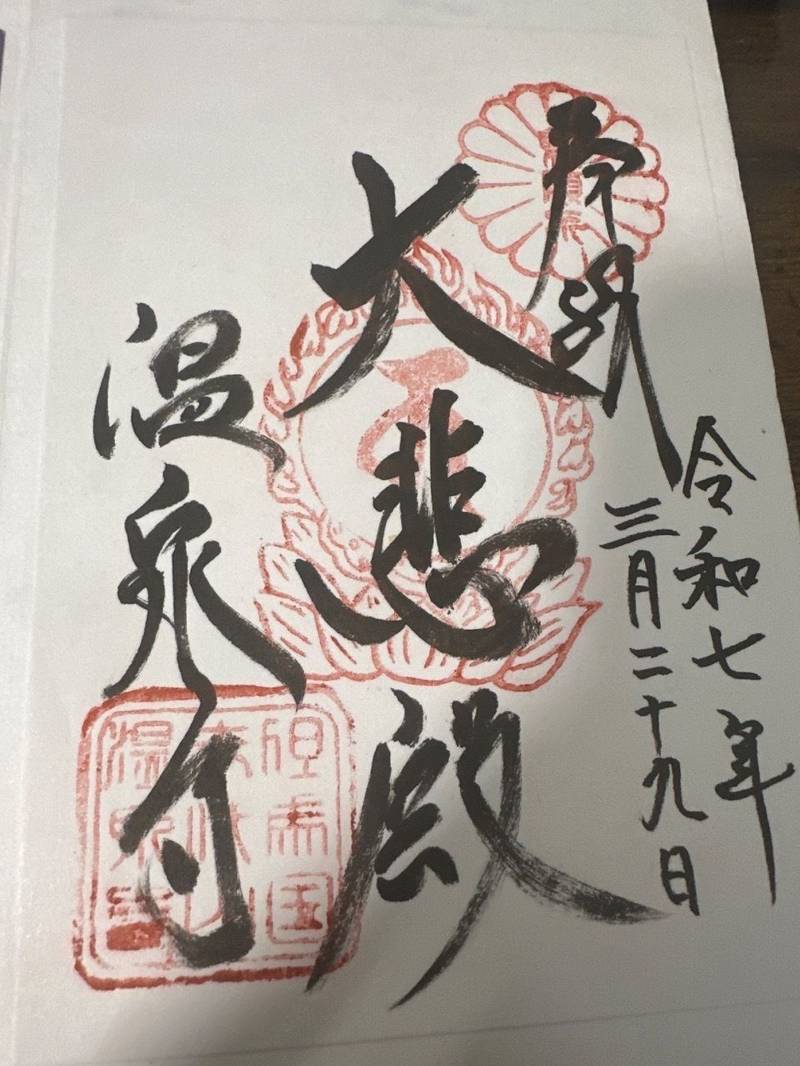 奉拝
令和七年
三月二十九日
大悲殿
温泉寺
但馬国
末代山
温泉寺